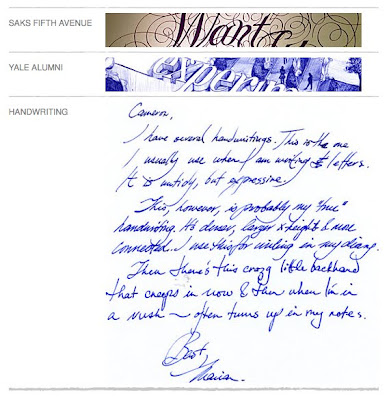 SAKS FIFTH AVENUE
Want
YALE ALUMNI
HANDWRITING
Cameron,
I have several handwritings. This is the one
I usually use when I am writing letters.
It is untidy, but expressive.
This, however, is probably my "true"
handwriting. It's denser, larger x-height & more
connected. I use this for writing in my diary.
Then there's this crazy little backhand
that creeps in now & then when I'm in
a rush — often turns up in my notes.
Best,
Marian.